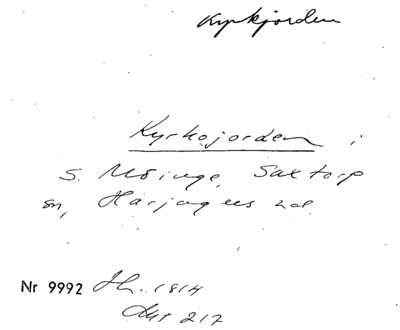 Kyrkjorden
Kyrkojorden i
S. Möinge, Saxtorp
sn, Harjagers hd.
Nr 9992 Jh. 1814
Akt 217